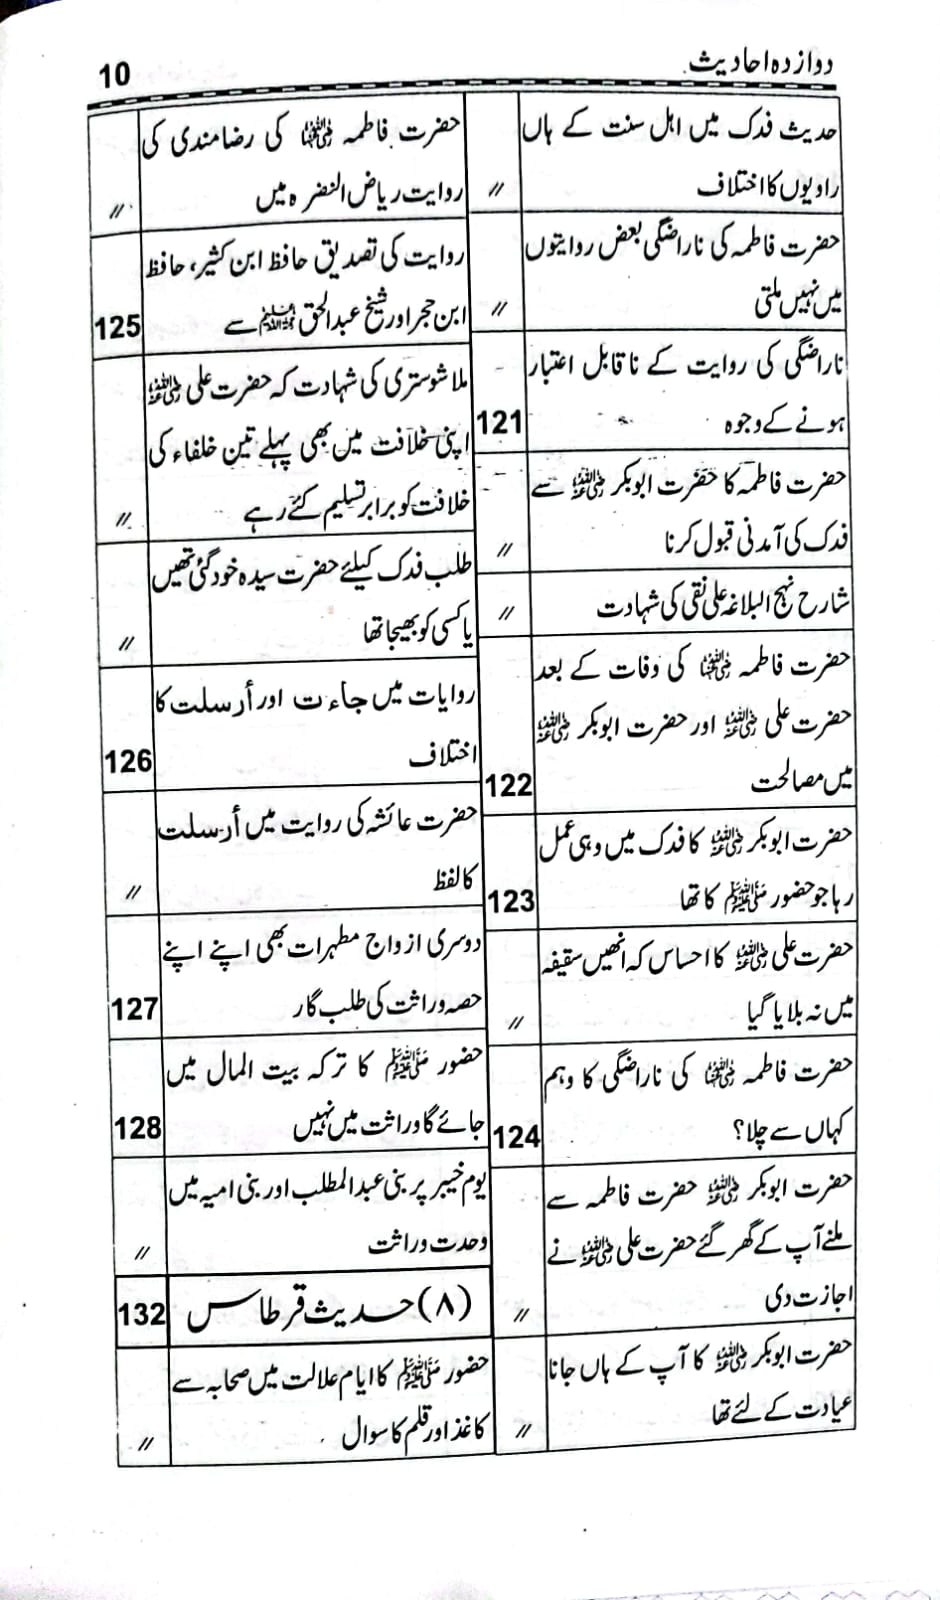 دوازدہ احادیث
10
حدیث فدک میں اہل سنت کے ہاں
راویوں کا اختلاف
//
حضرت فاطمہ کی ناراضگی بعض روایتوں
میں نہیں ملتی
//
ناراضگی کی روایت کے ناقابل اعتبار
ہونے کے وجوہ
121
حضرت فاطمہ کا حضرت ابوبکر رضی اللہ عنہ سے
فدک کی آمدنی قبول کرنا
//
شارح نہج البلاغہ علی نقی کی شہادت
//
حضرت فاطمہ رضی اللہ عنہا کی وفات کے بعد
حضرت علی رضی اللہ عنہ اور حضرت ابوبکر رضی اللہ عنہ
میں مصالحت
122
حضرت ابوبکر رضی اللہ عنہ کا فدک میں وہی عمل
رہا جو حضور ﷺ کا تھا
123
حضرت علی رضی اللہ عنہ کا احساس کہ انھیں سقیفہ
میں نہ بلایا گیا
//
حضرت فاطمہ رضی اللہ عنہا کی ناراضگی کا وہم
کہاں سے چلا؟
124
حضرت ابوبکر رضی اللہ عنہ حضرت فاطمہ سے
ملنے آپ کے گھر گئے حضرت علی رضی اللہ عنہ نے
اجازت دی
//
حضرت ابوبکر رضی اللہ عنہ کا آپ کے ہاں جانا
عیادت کے لئے تھا
//
حضرت فاطمہ رضی اللہ عنہا کی رضامندی کی
روایت ریاض النضرہ میں
//
روایت کی تصدیق حافظ ابن کثیر، حافظ
ابن حجر اور شیخ عبدالحق رحمہم اللہ سے
125
ملا شوستری کی شہادت کہ حضرت علی رضی اللہ عنہ
اپنی خلافت میں بھی پہلے تین خلفاء کی
خلافت کو برابر تسلیم کئے رہے
//
طلب فدک کیلئے حضرت سیدہ خود گئی تھیں
یا کسی کو بھیجا تھا
//
روایات میں جاءت اور أرسلت کا
اختلاف
126
حضرت عائشہ کی روایت میں أرسلت
کا لفظ
//
دوسری ازواج مطہرات بھی اپنے اپنے
حصہ وراثت کی طلب گار
127
حضور ﷺ کا ترکہ بیت المال میں
جائے گا وراثت میں نہیں
128
یوم خیبر پر بنی عبدالمطلب اور بنی امیہ میں
وحدت وراثت
//
(۸) حدیث قرطاس
132
حضور ﷺ کا ایام علالت میں صحابہ سے
کاغذ اور قلم کا سوال
//